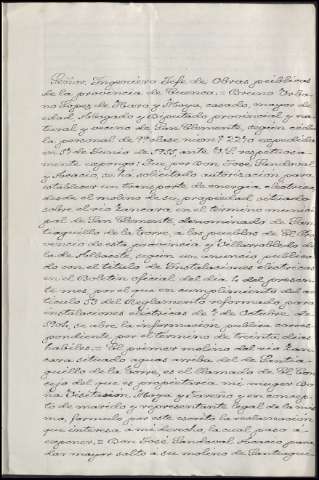 Señor Ingeniero Jefe de Obras públicas
de la provincia de Cuenca.= Bruno
López de Haro y Moya, casado, mayor de
edad Abogado y Diputado provincial y na-
tural y vecino de San Clemente, según cédu-
la personal de clase num. expedida
en 1º de Junio de ante V.S. respetuosa-
mente expongo: Que por Don José Sandoval
y Acacio, se ha solicitado autorización para
establecer un transporte de energía eléctrica
desde el molino de su propiedad situado
sobre el río Záncara en el término munici-
pal de San Clemente, denominado de San-
tiaguillo de la Torre, á los pueblos de El Pro-
vencio de esta provincia y Villarrobledo de
la de Albacete, según un anuncio publica-
do con el título de Instalaciones eléctricas
en el Boletín oficial del día 1 del presen-
te mes, por el que en cumplimiento del ar-
tículo 53 del Reglamento reformado, para
instalaciones eléctricas de 7 de Octubre de
1904, se abre la información pública corres-
pondiente, por el término de treinta días
hábiles.= El primer molino del río Zán-
cara situado aguas arriba del de Santia-
guillo de la Torre, es el llamado de El Con-
cejo del que es propietaria mi mujer Do-
ña Visitación Moya y en concep-
to de marido y representante legal de la mis-
ma, formulo por este escrito la reclamación
que interesa á mi derecho, la cual paso á
exponer.= Don José Sandoval Acacio para
dar mayor salto á su molino de Santiagui-